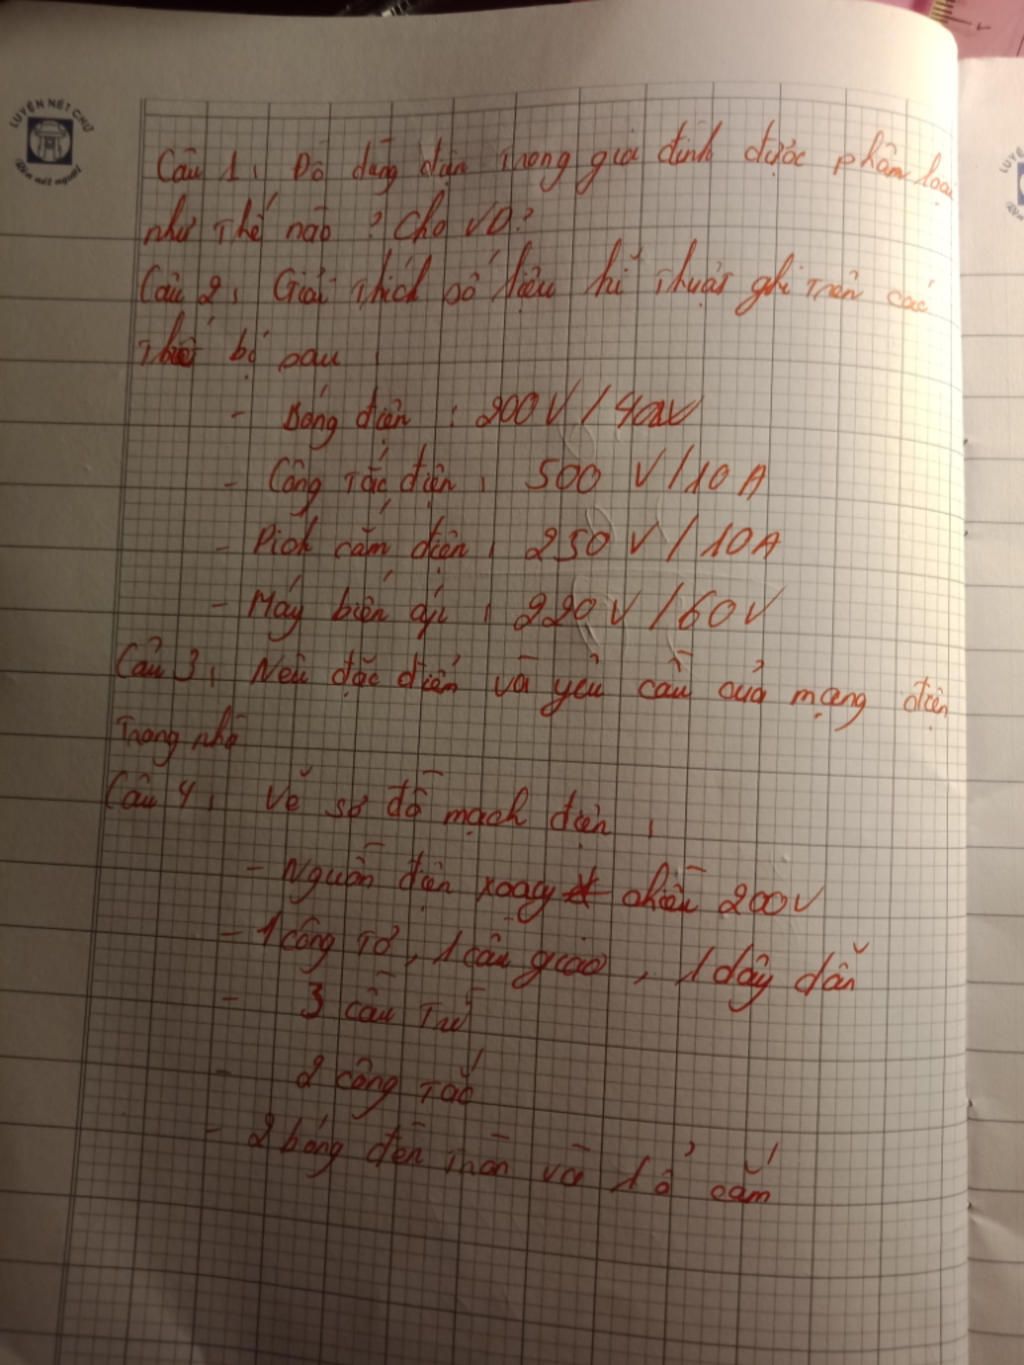 LUYỆN NÉT CHỮ
Rèn nết người
Câu 1, Đồ dùng điện trong gia đình được phân loại
như thế nào ? Cho VD?
Câu 2, Giải thích số liệu kĩ thuật ghi trên các
thiết bị sau
- Bóng điện : 200V / 40W
- Công tắc điện : 500 V / 10 A
- Pick cắm điện : 250 V / 10A
- Máy biến áp : 220V / 60V
Câu 3, Nêu đặc điểm và yêu cầu của mạng điện
trong nhà
Câu 4, Vẽ sơ đồ mạch điện :
- Nguồn điện xoay chiều 200V
- 1 công tơ, 1 cầu giao, 1 dây dẫn
- 3 cầu trì
- 2 công tắc
- 2 bóng đèn tròn và 1 ổ cắm
LUYỆ